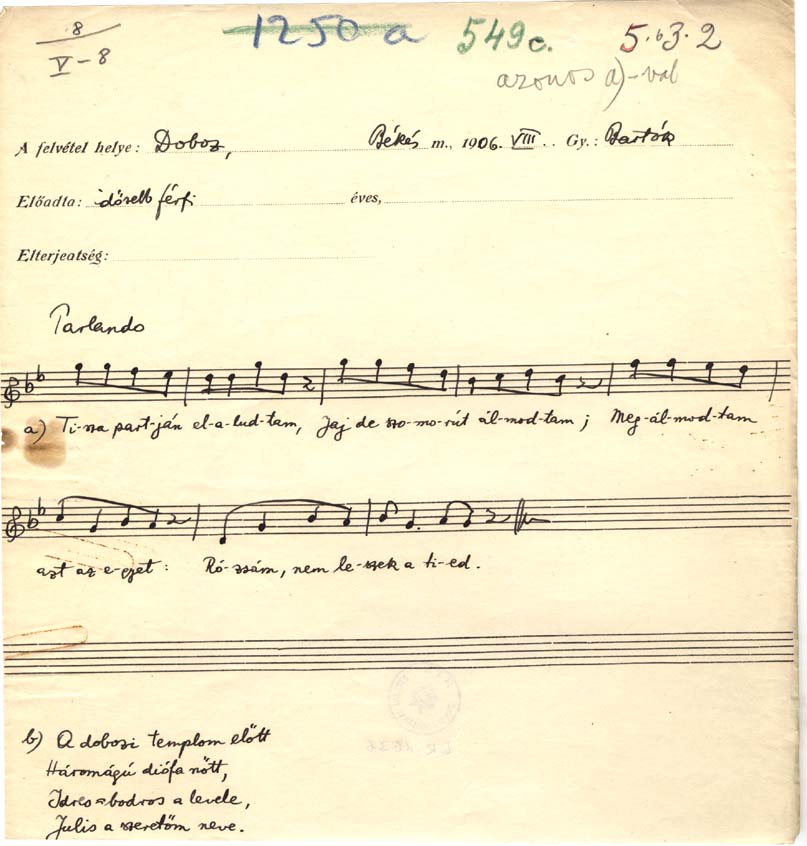 8
V-8
1250 a 549c. 5.b3.2
azonos a)-val
A felvétel helye: Doboz, Békés m., 1906. VIII. Gy.: Bartók
Előadta: idősebb férfi éves,
Elterjedtség:
Parlando
a) Ti-sza part-ján el-a-lud-tam, Jaj de szo-mo-rút ál-mod-tam; Meg-ál-mod-tam
azt az e-gyet: Ró-zsám, nem le-szek a ti-ed.
b) A dobozi templom előtt
Háromágú diófa nőtt,
Idres-bodros a levele,
Julis a szeretőm neve.